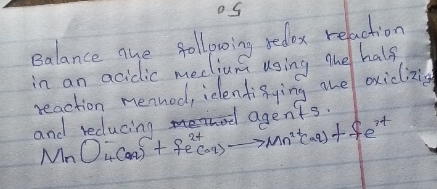 05
Balance the following redox reaction
in an acidic medium using the half
reaction method, identifying the oxidizing
and reducing method agents.
MnO₄⁻(aq) + Fe²⁺(aq) → Mn²⁺(aq) + Fe³⁺